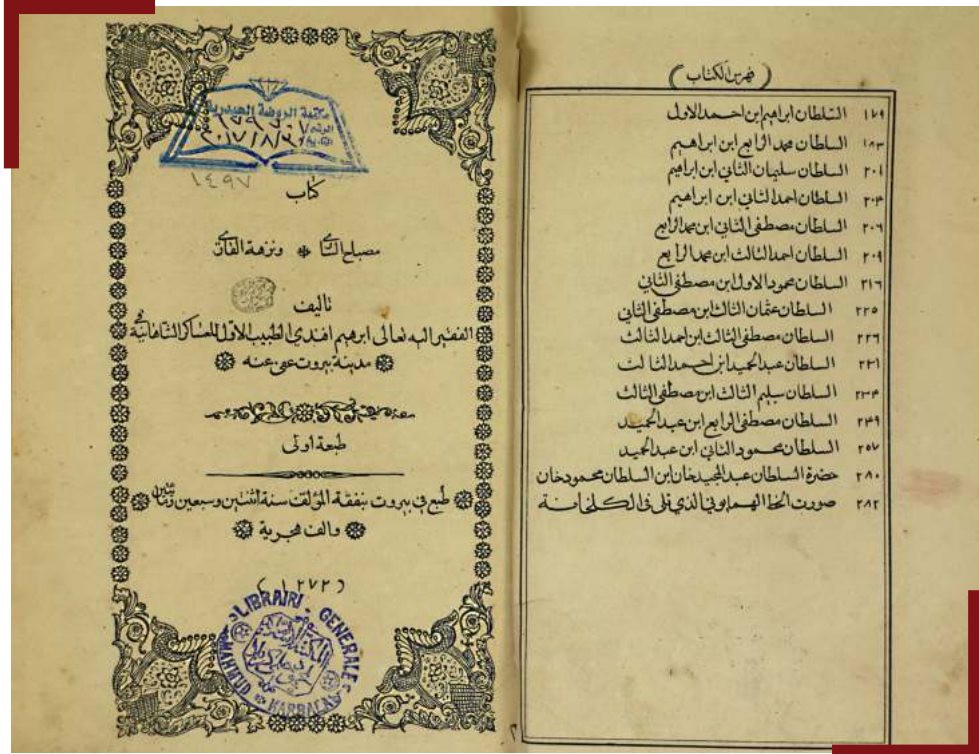 ( فهرس الكتاب )
١٧٩ السلطان ابراهيم ابن احمد الاول
١٨٣ السلطان محمد الرابع ابن ابراهيم
٢٠١ السلطان سليمان الثاني ابن ابراهيم
٢٠٤ السلطان احمد الثاني ابن ابراهيم
٢٠٦ السلطان مصطفى الثاني ابن محمد الرابع
٢٠٩ السلطان احمد الثالث ابن محمد الرابع
٢١٦ السلطان محمود الاول ابن مصطفى الثاني
٢٢٥ السلطان عثمان الثالث ابن مصطفى الثاني
٢٢٦ السلطان مصطفى الثالث ابن احمد الثالث
٢٣١ السلطان عبد الحميد ابن احمد الثالث
٢٣٤ السلطان سليم الثالث ابن مصطفى الثالث
٢٤٩ السلطان مصطفى الرابع ابن عبد الحميد
٢٥٧ السلطان محمود الثاني ابن عبد الحميد
٢٨٠ حضرة السلطان عبد المجيد خان ابن السلطان محمود خان
٢٨٢ صورت الخط الهمايوني الذي تلي في الكلخانة
مكتبة الروضة الحيدرية
الرقم ٧٩٠٧
التاريخ ٢٠١٧/٨/٣
١٤٩٧
كتاب
مصباح الساري ونزهة القاري
تاليف
الفقير اليه تعالى ابرهيم افندي الطبيب الاول للعساكر الشاهانية في
مدينة بيروت عفي عنه
طبعة اولى
طبع في بيروت بنفقة المؤلف سنة اثنتين وسبعين ومائتين
والف هجرية
(١٢٧٢)
LIBRAIRI GENERALES
KARBALA